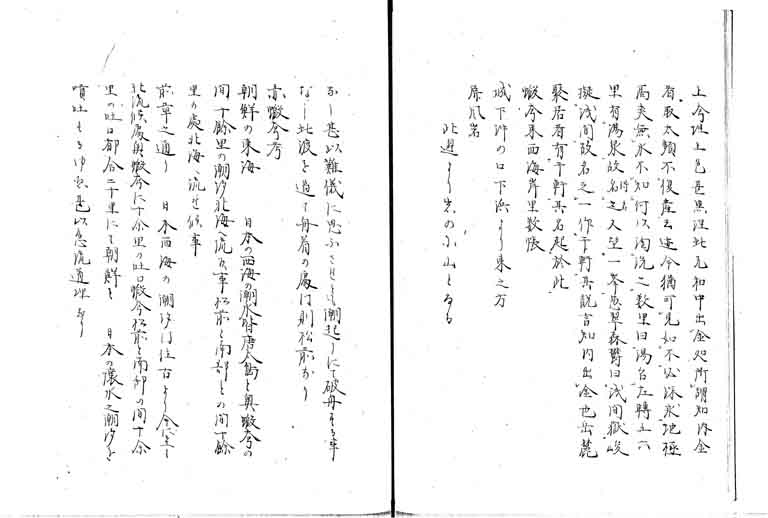 上今堀土色甚黒涅此元和中出金処所謂知内金
者取太頻不復産云迄今猶可見如不必珠泉池極
高夾無水不知何以淘洗之数里曰湯台左轉上六
里有湯泉故名之又望一峯悉翠森欝曰浅間嶽峻
擬浅間故名之一作千軒其説言知内出金也岳麓
聚居者有千軒其名起於此
蝦夷東西海岸里数張
城下沖の口下浜より東之方
屏風岩
此辺より先の小山となる
なし甚以難儀に思ふさせとも潮起しにて破舟する事
なし此渡を過て舟着の處は則松前なり
赤蝦夷考
朝鮮の東海 日本の西海の潮水唐太島と奥蝦夷の
間十餘里の潮汐北海へ流る事松前と南部との間十餘
里の處北海へ流せ候事
前章之通り 日本西海の潮汐は往古より今に至て
北流候處奥蝦夷に十余里の吐口蝦夷松前と南部の間十余
里の吐口都合二十里にて朝鮮と 日本の濃水之潮汐を
噴吐もるゆえ甚以急流道理なり